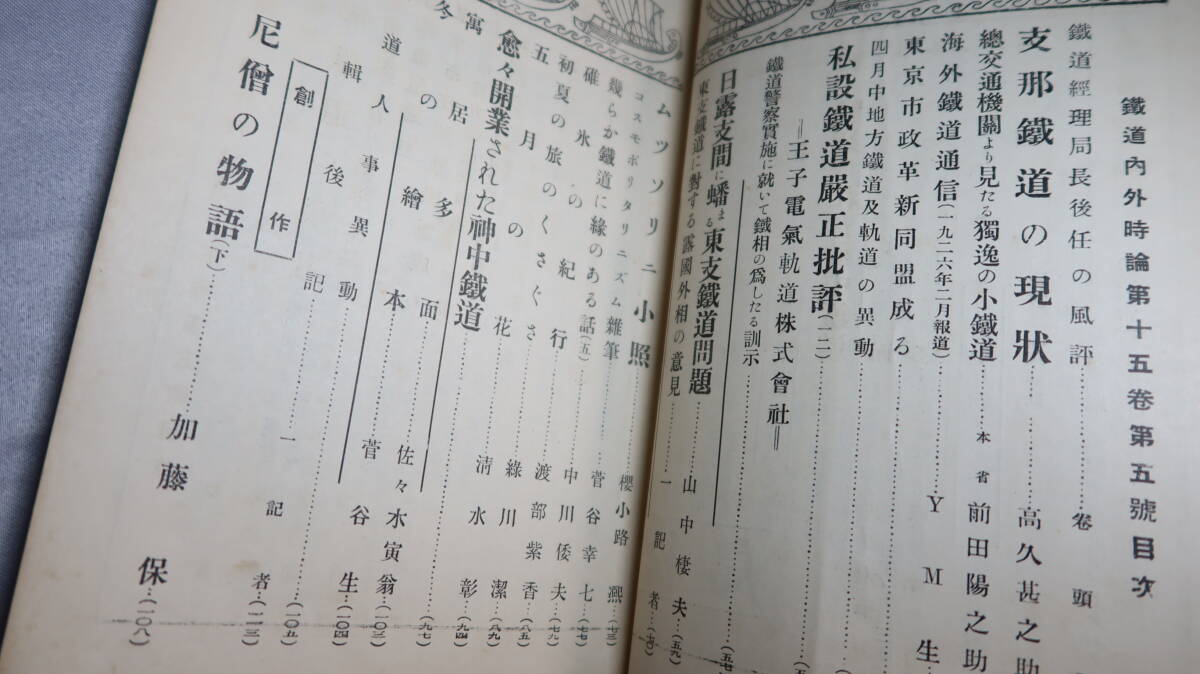 鐵道內外時論第十五卷第五號目次
鐵道經理局長後任の風評………卷頭
支那鐵道の現狀………高久甚之助
總交通機關より見たる獨逸の小鐵道………本省 前田陽之助
海外鐵道通信(一九二六年二月報道)………YM生
東京市政革新同盟成る………
四月中地方鐵道及軌道の異動………
私設鐵道嚴正批評(一二)………
＝王子電氣軌道株式會社＝
鐵道警察實施に就いて鐵相の爲したる訓示………
日露支間に蟠まる東支鐵道問題………山中棲夫…(五九)
東支鐵道に對する露國外相の意見………一記者
ムツソリニ小照………櫻小路凞…(七三)
コスモポリタリニズム雜筆………菅谷幸七…(七七)
幾らか鐵道に緣のある話(五)………中川倭夫…(七九)
碓氷の紀行………渡部紫香…(八五)
初夏の旅のくさぐさ………綠川潔…(八九)
五月の花………淸水彰…(九四)
愈々開業された神中鐵道………(九七)
萬居多面
今の繪本………佐々木寅翁…(一〇三)
道人事異動………菅谷生…(一〇四)
輯後記………一記者…(一一三)
創作
尼僧の物語(下)………加藤保…(一〇八)
(一〇五)